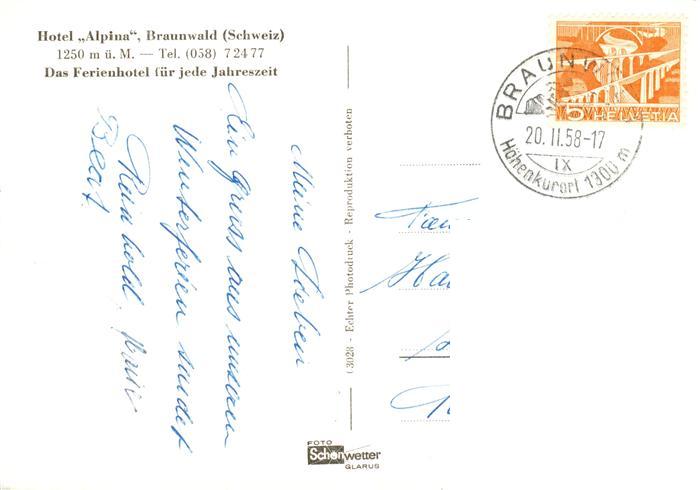 Hotel „Alpina“, Braunwald (Schweiz)
1250 m ü. M. — Tel. (058) 7 24 77
Das Ferienhotel für jede Jahreszeit
Meine Lieben
Ein Gruss aus unseren
Winterferien sendet
Reinhold
Beat
(3028 - Echter Photodruck - Reproduktion verboten
FOTO
Schönwetter
GLARUS
Fam
Ha
HELVETIA
5
BRAUNW
20. II. 58-17
IX
Höhenkurort 1300 m